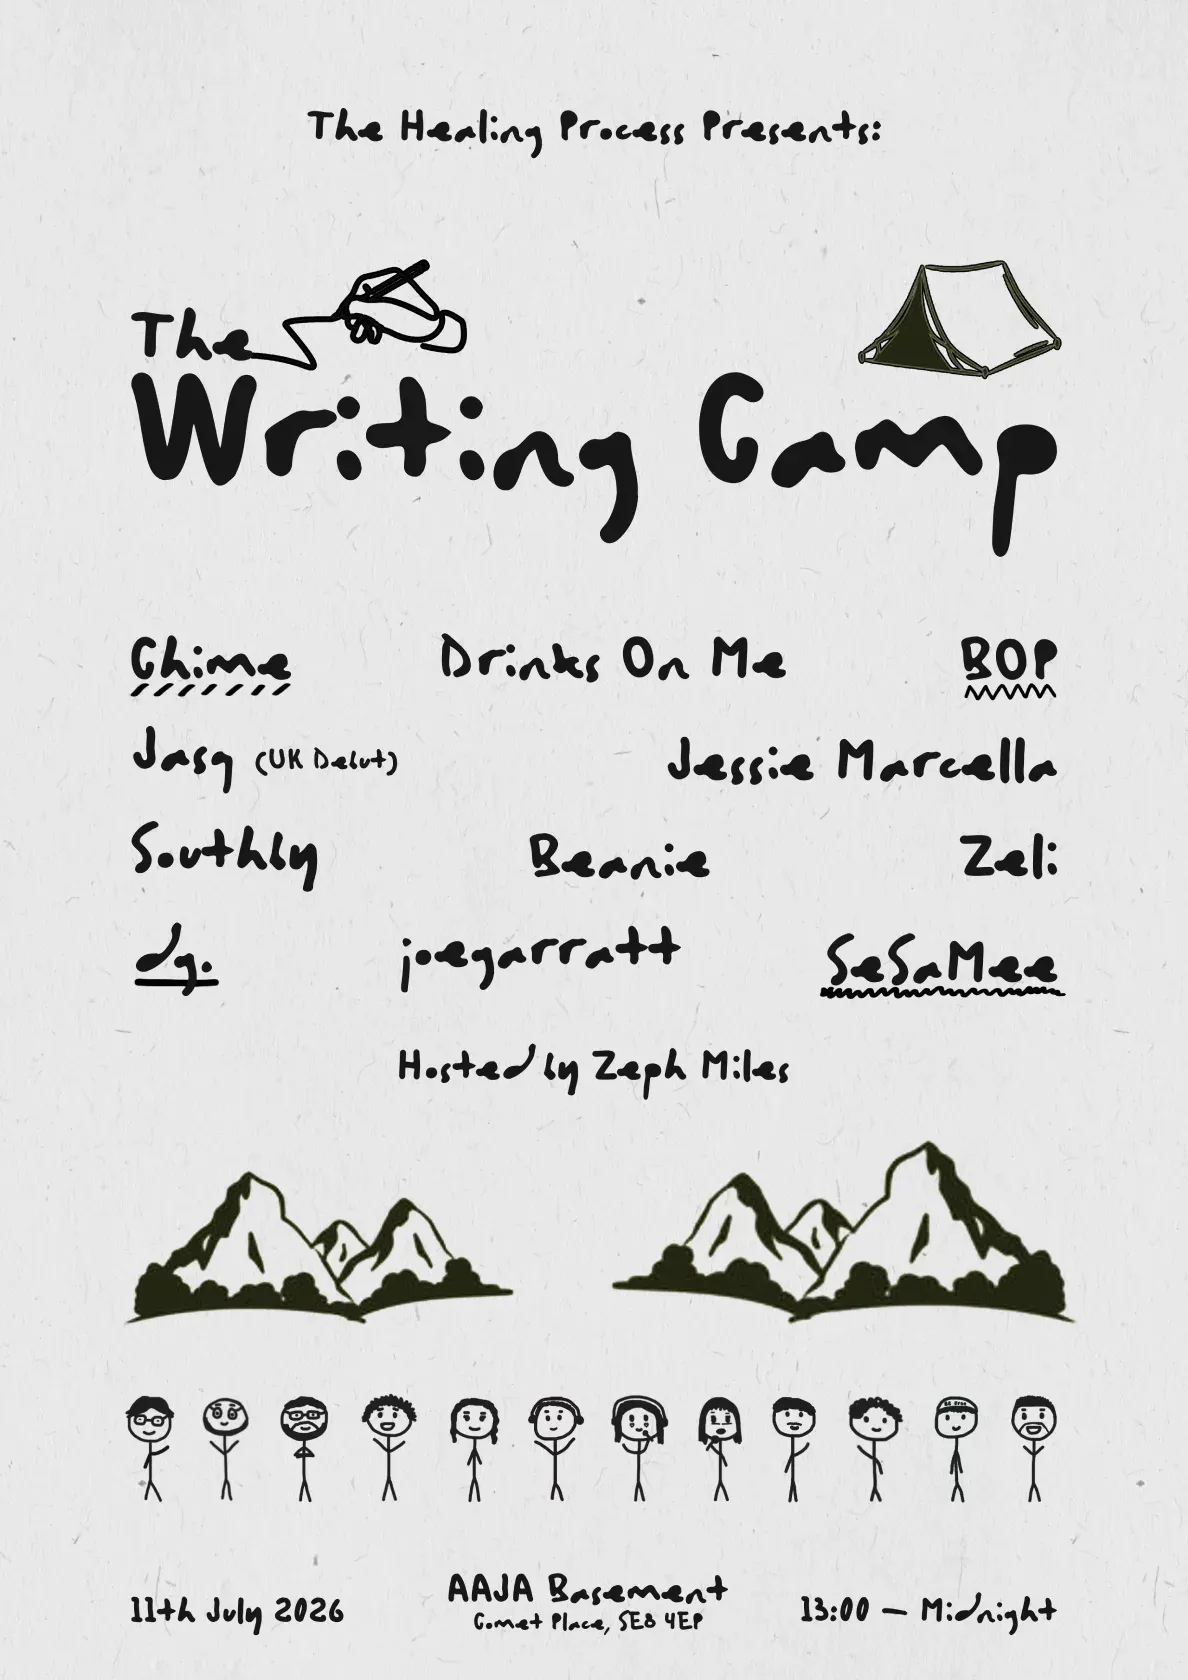 The Healing Process Presents:
The
Writing Camp
Chime Drinks On Me BOP
Jasq (UK Debut) Jessie Marcella
Southby Beanie Zeli
dg. joegarratt SeSaMee
Hosted by Zeph Miles
11th July 2026 AAJA Basement 13:00 — Midnight
Comet Place, SE8 4EP